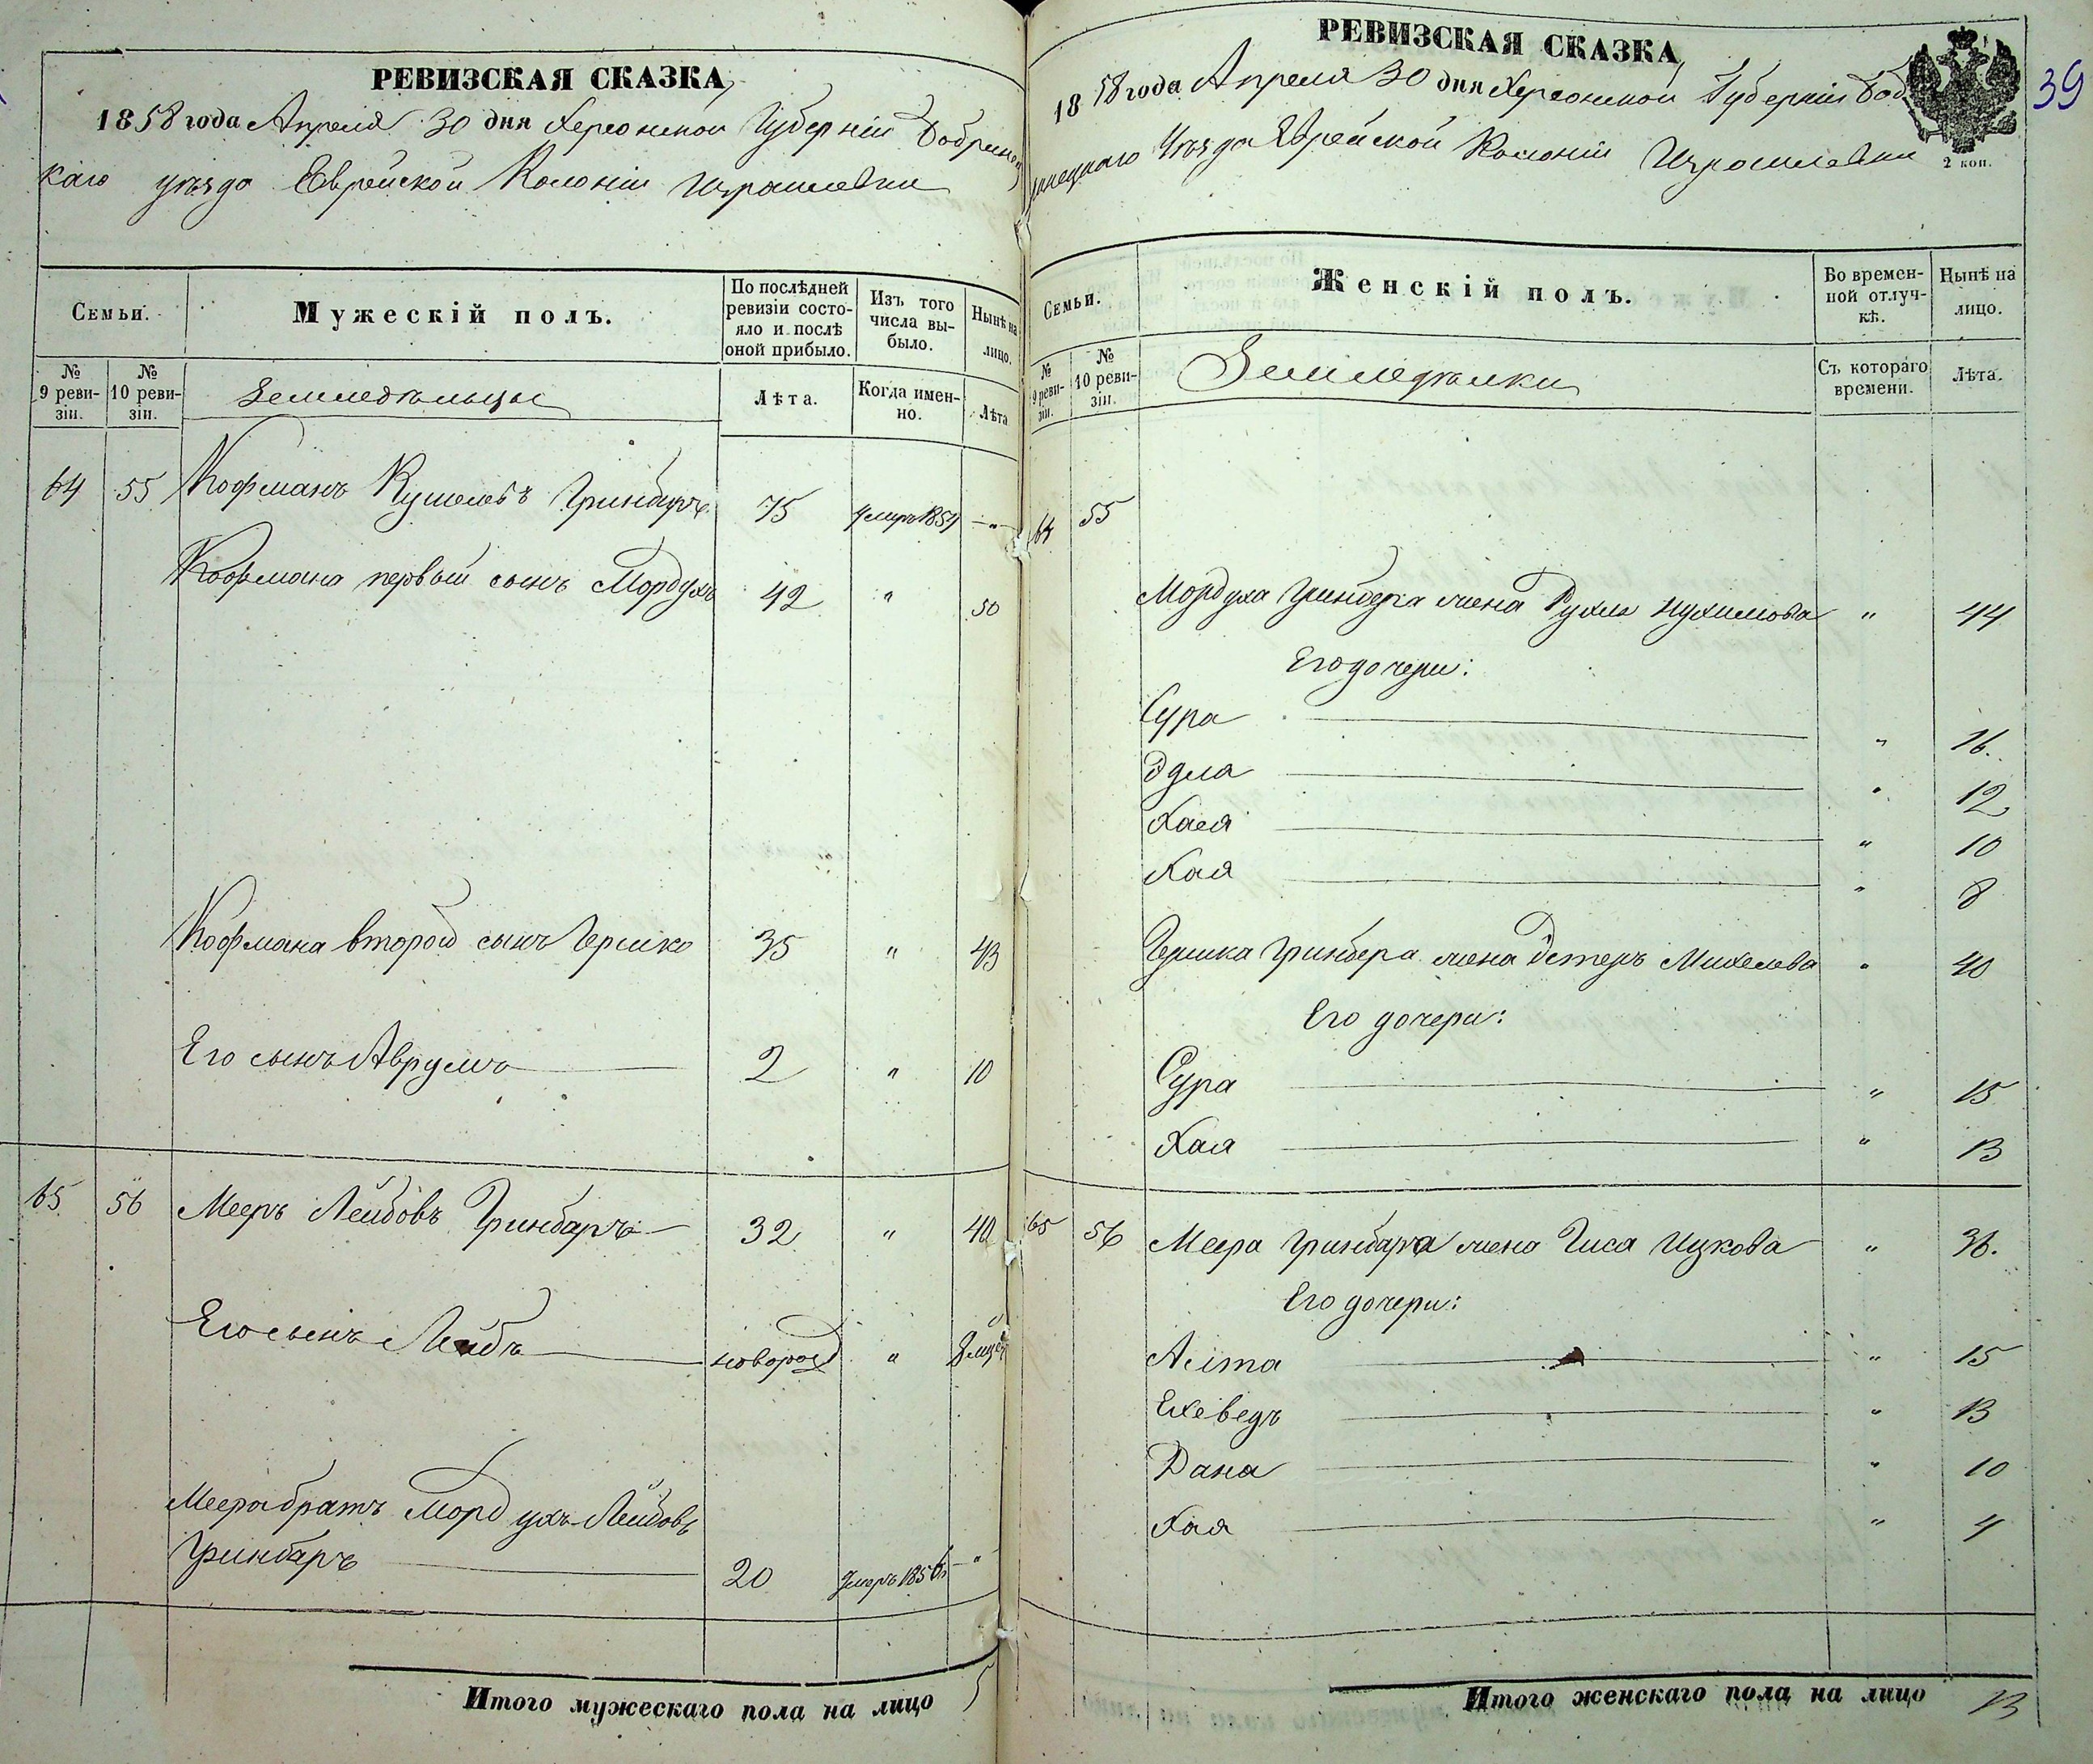 РЕВИЗСКАЯ СКАЗКА
1858 года Апреля 30 дня Херсонской Губерніи Бобринец
каго уѣзда Еврейской Колоніи Израилевки
Семьи.
Мужескій полъ.
По послѣдней ревизіи состояло и послѣ оной прибыло.
Изъ того числа выбыло.
Нынѣ на лицо.
№ 9 ревизіи.
№ 10 ревизіи.
Земледѣльцы
Лѣта.
Когда именно.
Лѣта
64 55 Кофманъ Кушелевъ Гринбаръ 75 умеръ 1854 — "
Кофмана первый сынъ Мордухъ 42 " 50
Кофмана второй сынъ Гершко 35 " 43
Его сынъ Аврумъ 2 " 10
65 56 Мееръ Лейбовъ Гринбаръ 32 " 40
Его сынъ Лейбъ новорож " 8
Меера братъ Мордухъ Лейбовъ
Гринбаръ 20 Умеръ 1856 — "
Итого мужескаго пола на лицо 5
РЕВИЗСКАЯ СКАЗКА
39
1858 года Апреля 30 дня Херсонской Губерніи Боб
ринецкаго Уѣзда Еврейской Колоніи Израилевки
2 коп.
Семьи.
Женскій полъ.
Во временной отлучкѣ.
Нынѣ на лицо.
№ 9 ревизіи.
№ 10 ревизіи.
Земледѣлки
Съ котораго времени.
Лѣта.
64 55
Мордуха Гринбера жена Рухля Нухимова " 44
Его дочери:
Сура " 16.
Эдла " 12
Хася " 10
Хая " 8
Гершка Гринбера жена Эстеръ Михелева " 40
Его дочери:
Сура " 15
Хая " 13
65 56 Меера Гринбара жена Гиса Ицкова " 36.
Его дочери:
" 15
Ехеведъ " 13
Дана " 10
Хая " 4
Итого женскаго пола на лицо 13